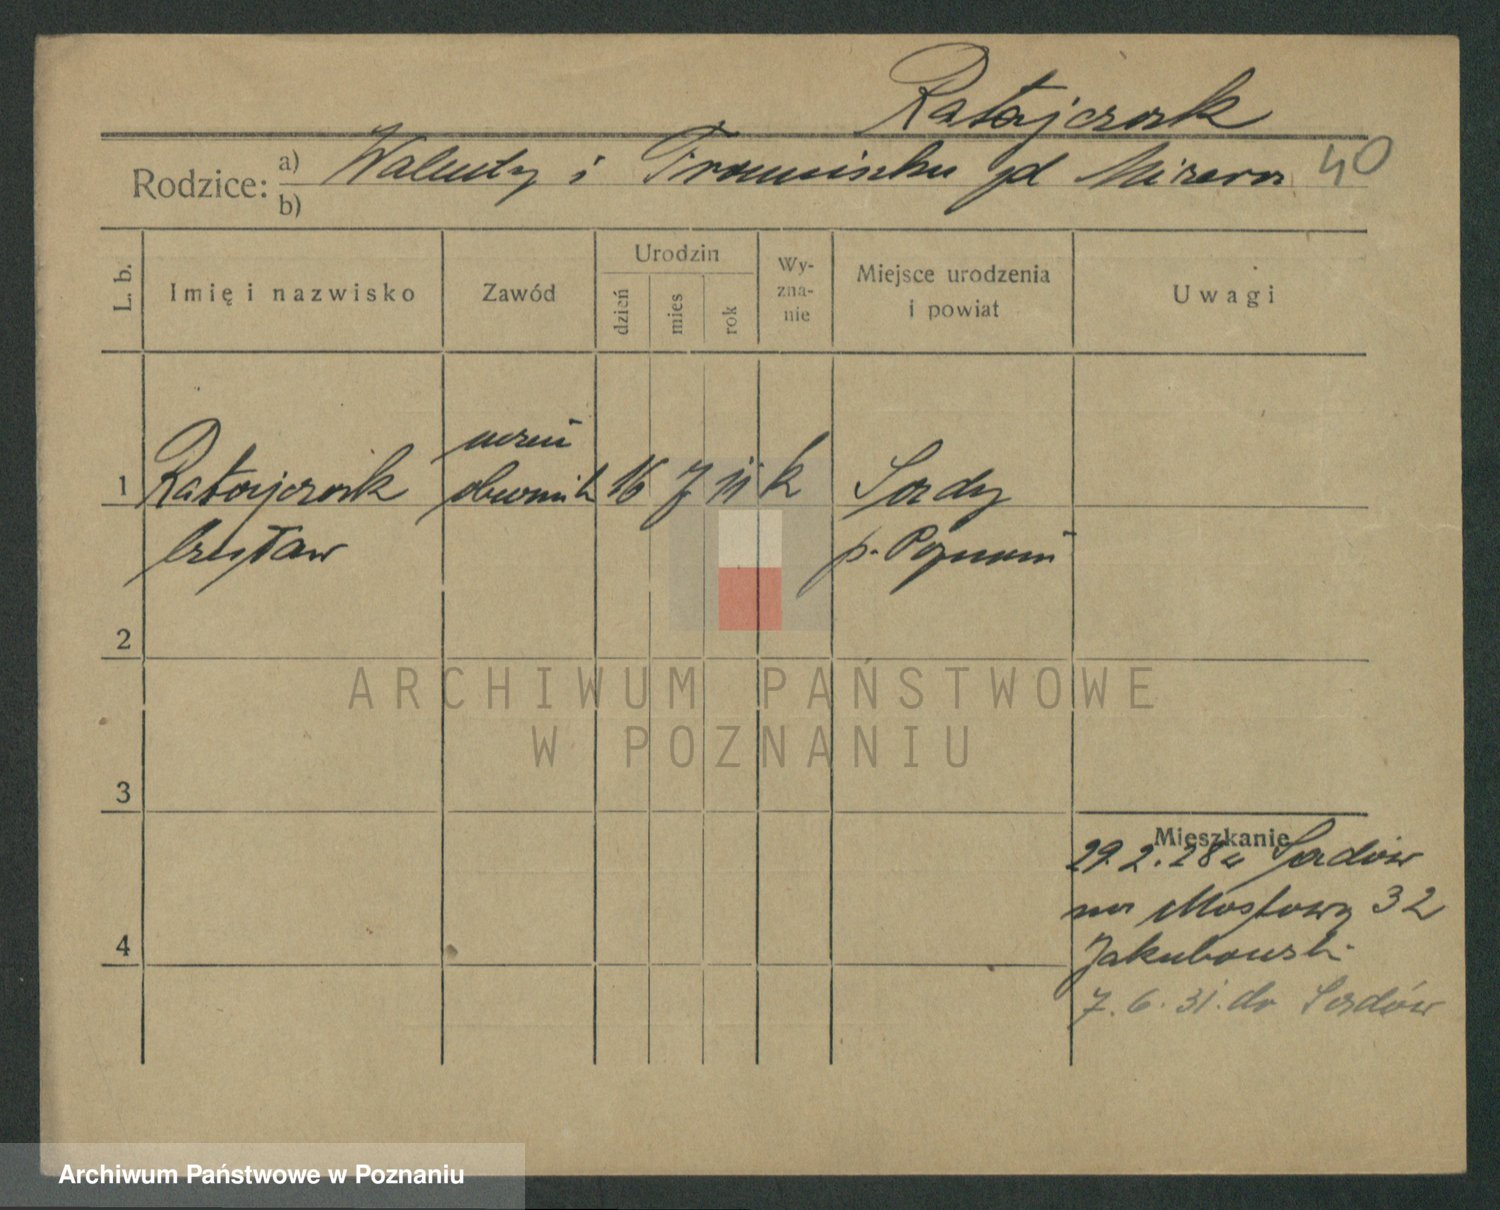 Ratajczak
Rodzice: a) Walenty i Franciszka zd Mizera 40
b)
L. b. Imię i nazwisko Zawód Urodzin dzień mies rok Wy-zna-nie Miejsce urodzenia i powiat Uwagi
uczeń
1 Ratajczak 16 7 11 k Sady
Czesław p. Poznań
2
ARCHIWUM PAŃSTWOWE
W POZNANIU
3
Mieszkanie
29.2.28 z Sadów
na Mostowa 32
4 Jakubowski
7.6.31. do Sadów
Archiwum Państwowe w Poznaniu